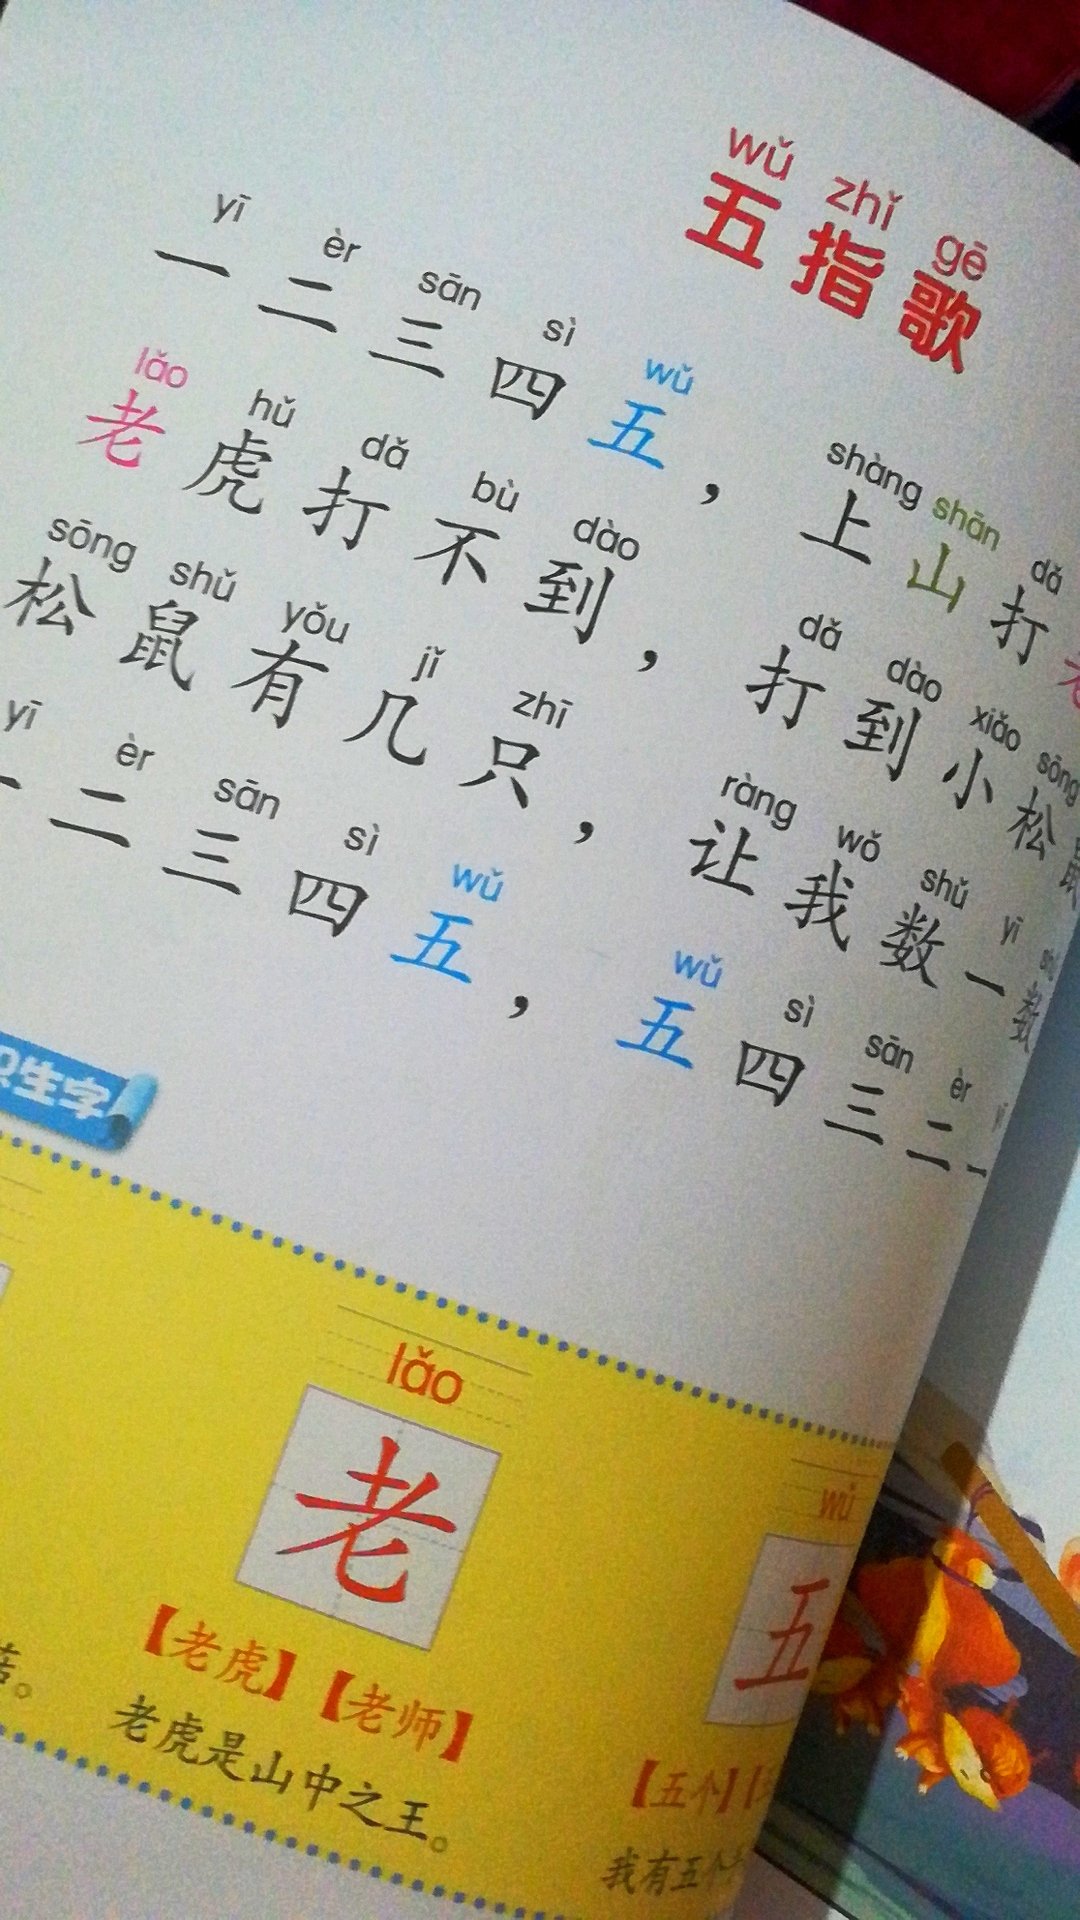 wǔ zhǐ gē
五指歌
yī èr sān sì wǔ shàng shān dǎ
一二三四五，上山打老
lǎo hǔ dǎ bù dào dǎ dào xiǎo sōng
老虎打不到，打到小松鼠
sōng shǔ yǒu jǐ zhī ràng wǒ shǔ yī shǔ
松鼠有几只，让我数一数
yī èr sān sì wǔ wǔ sì sān èr yī
一二三四五，五四三二一
识生字
lǎo wǔ
老 五
【老虎】【老师】 【五个】【
老虎是山中之王。 我有五个